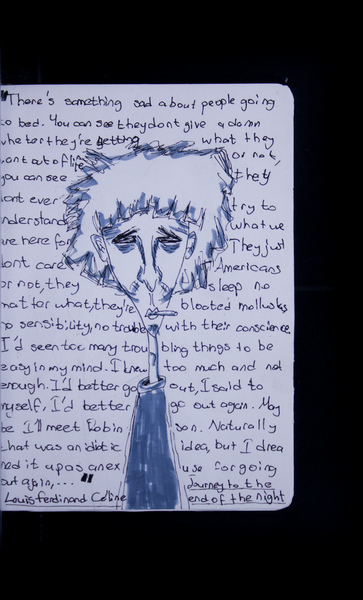 "There's something sad about people going
to bed. You can see they dont give a damn
whether they're getting what they
want out of life or not,
you can see they
dont ever try to
nderstand what we
we here for They just
dont care Americans
or not, they sleep no
matter what, they're bloated mollusks
no sensibility, no trouble with their conscience.
I'd seen too many troubling things to be
easy in my mind. I knew too much and not
enough. I'd better go out, I said to
myself, I'd better go out again. May
be I'll meet Robinson. Naturally
that was an idiotic idea, but I drea
med it up as an excuse for going
out again, ... "
Journey to the
Louis ferdinand Celine end of the night